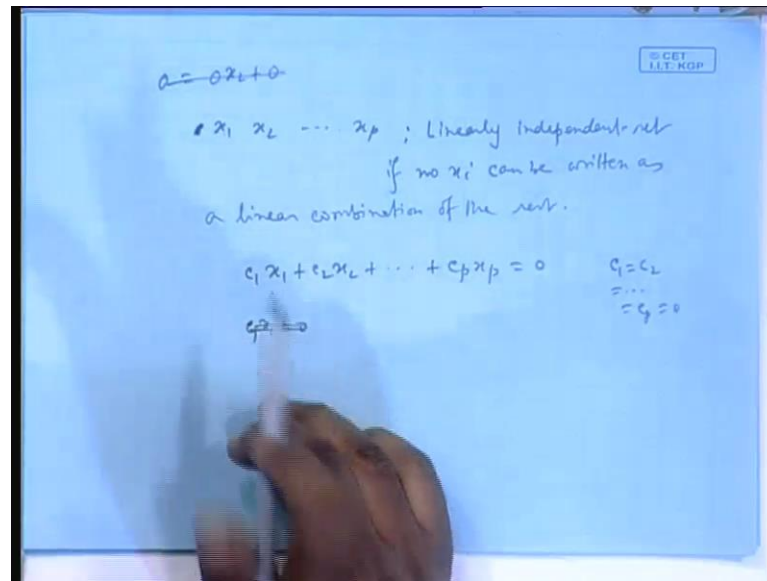 a = 0x₂ + 0
© CET
I.I.T. KGP
x₁ x₂ ---- xₚ ; Linearly independent set
if no xᵢ can be written as
a linear combination of the rest.
c₁x₁ + c₂x₂ + ··· + cₚxₚ = 0 c₁ = c₂
= ···
= cₚ = 0
= 0